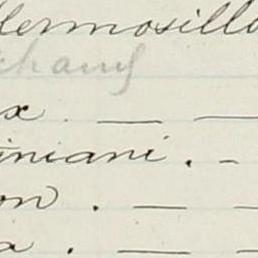 Hermosillo
chany
x . — —
iniani . -
on . — —
a . — —